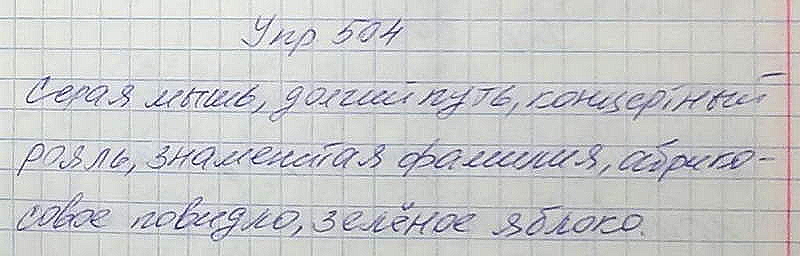 Упр 504
Серая мышь, долгий путь, концертный
рояль, знаменитая фамилия, абрико-
совое повидло, зелёное яблоко.